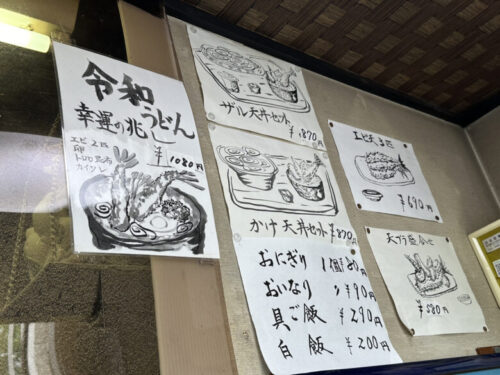 令和うどん
幸運の兆し
エビ2匹
卵
トロロ昆布
カイワレ
¥1080円
ザル天丼セット
¥870円
かけ天丼セット ¥870
おにぎり 1個
おいなり 〃 ¥90円
具ご飯 ¥290円
白飯 ¥200円
¥690円
天プラ盛合せ
¥580円